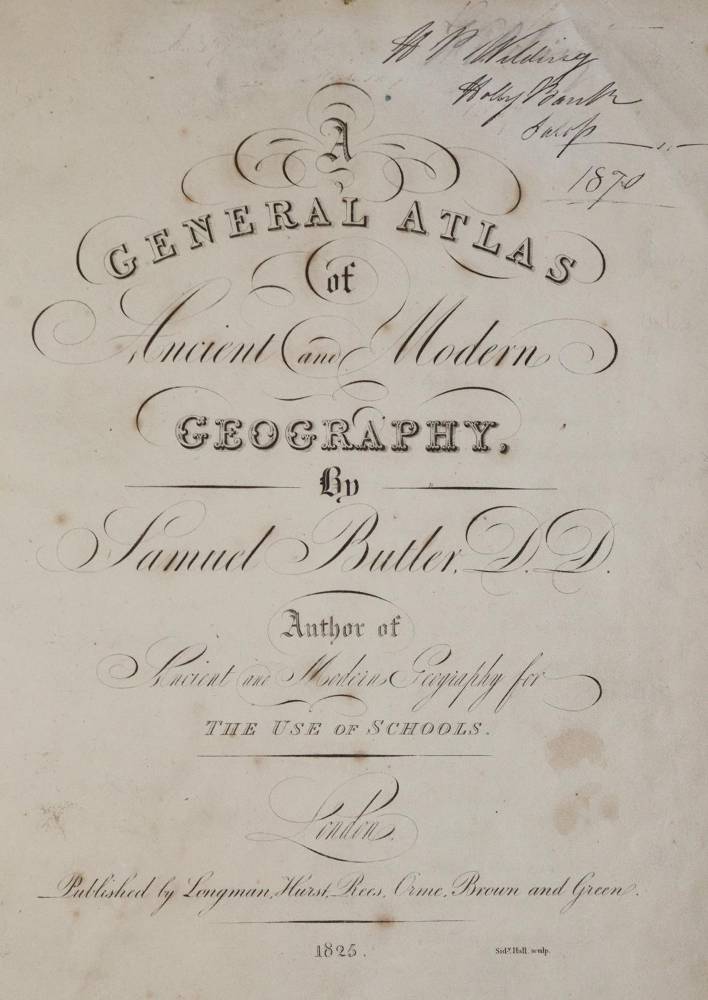 H P Wilding
Holly Bank
Salop
1870
A
GENERAL ATLAS
of
Ancient and Modern
GEOGRAPHY,
By
Samuel Butler, D.D.
Author of
Ancient and Modern Geography for
THE USE OF SCHOOLS.
London.
Published by Longman, Hurst, Rees, Orme, Brown and Green.
1825.
Sidy. Hall, sculp.